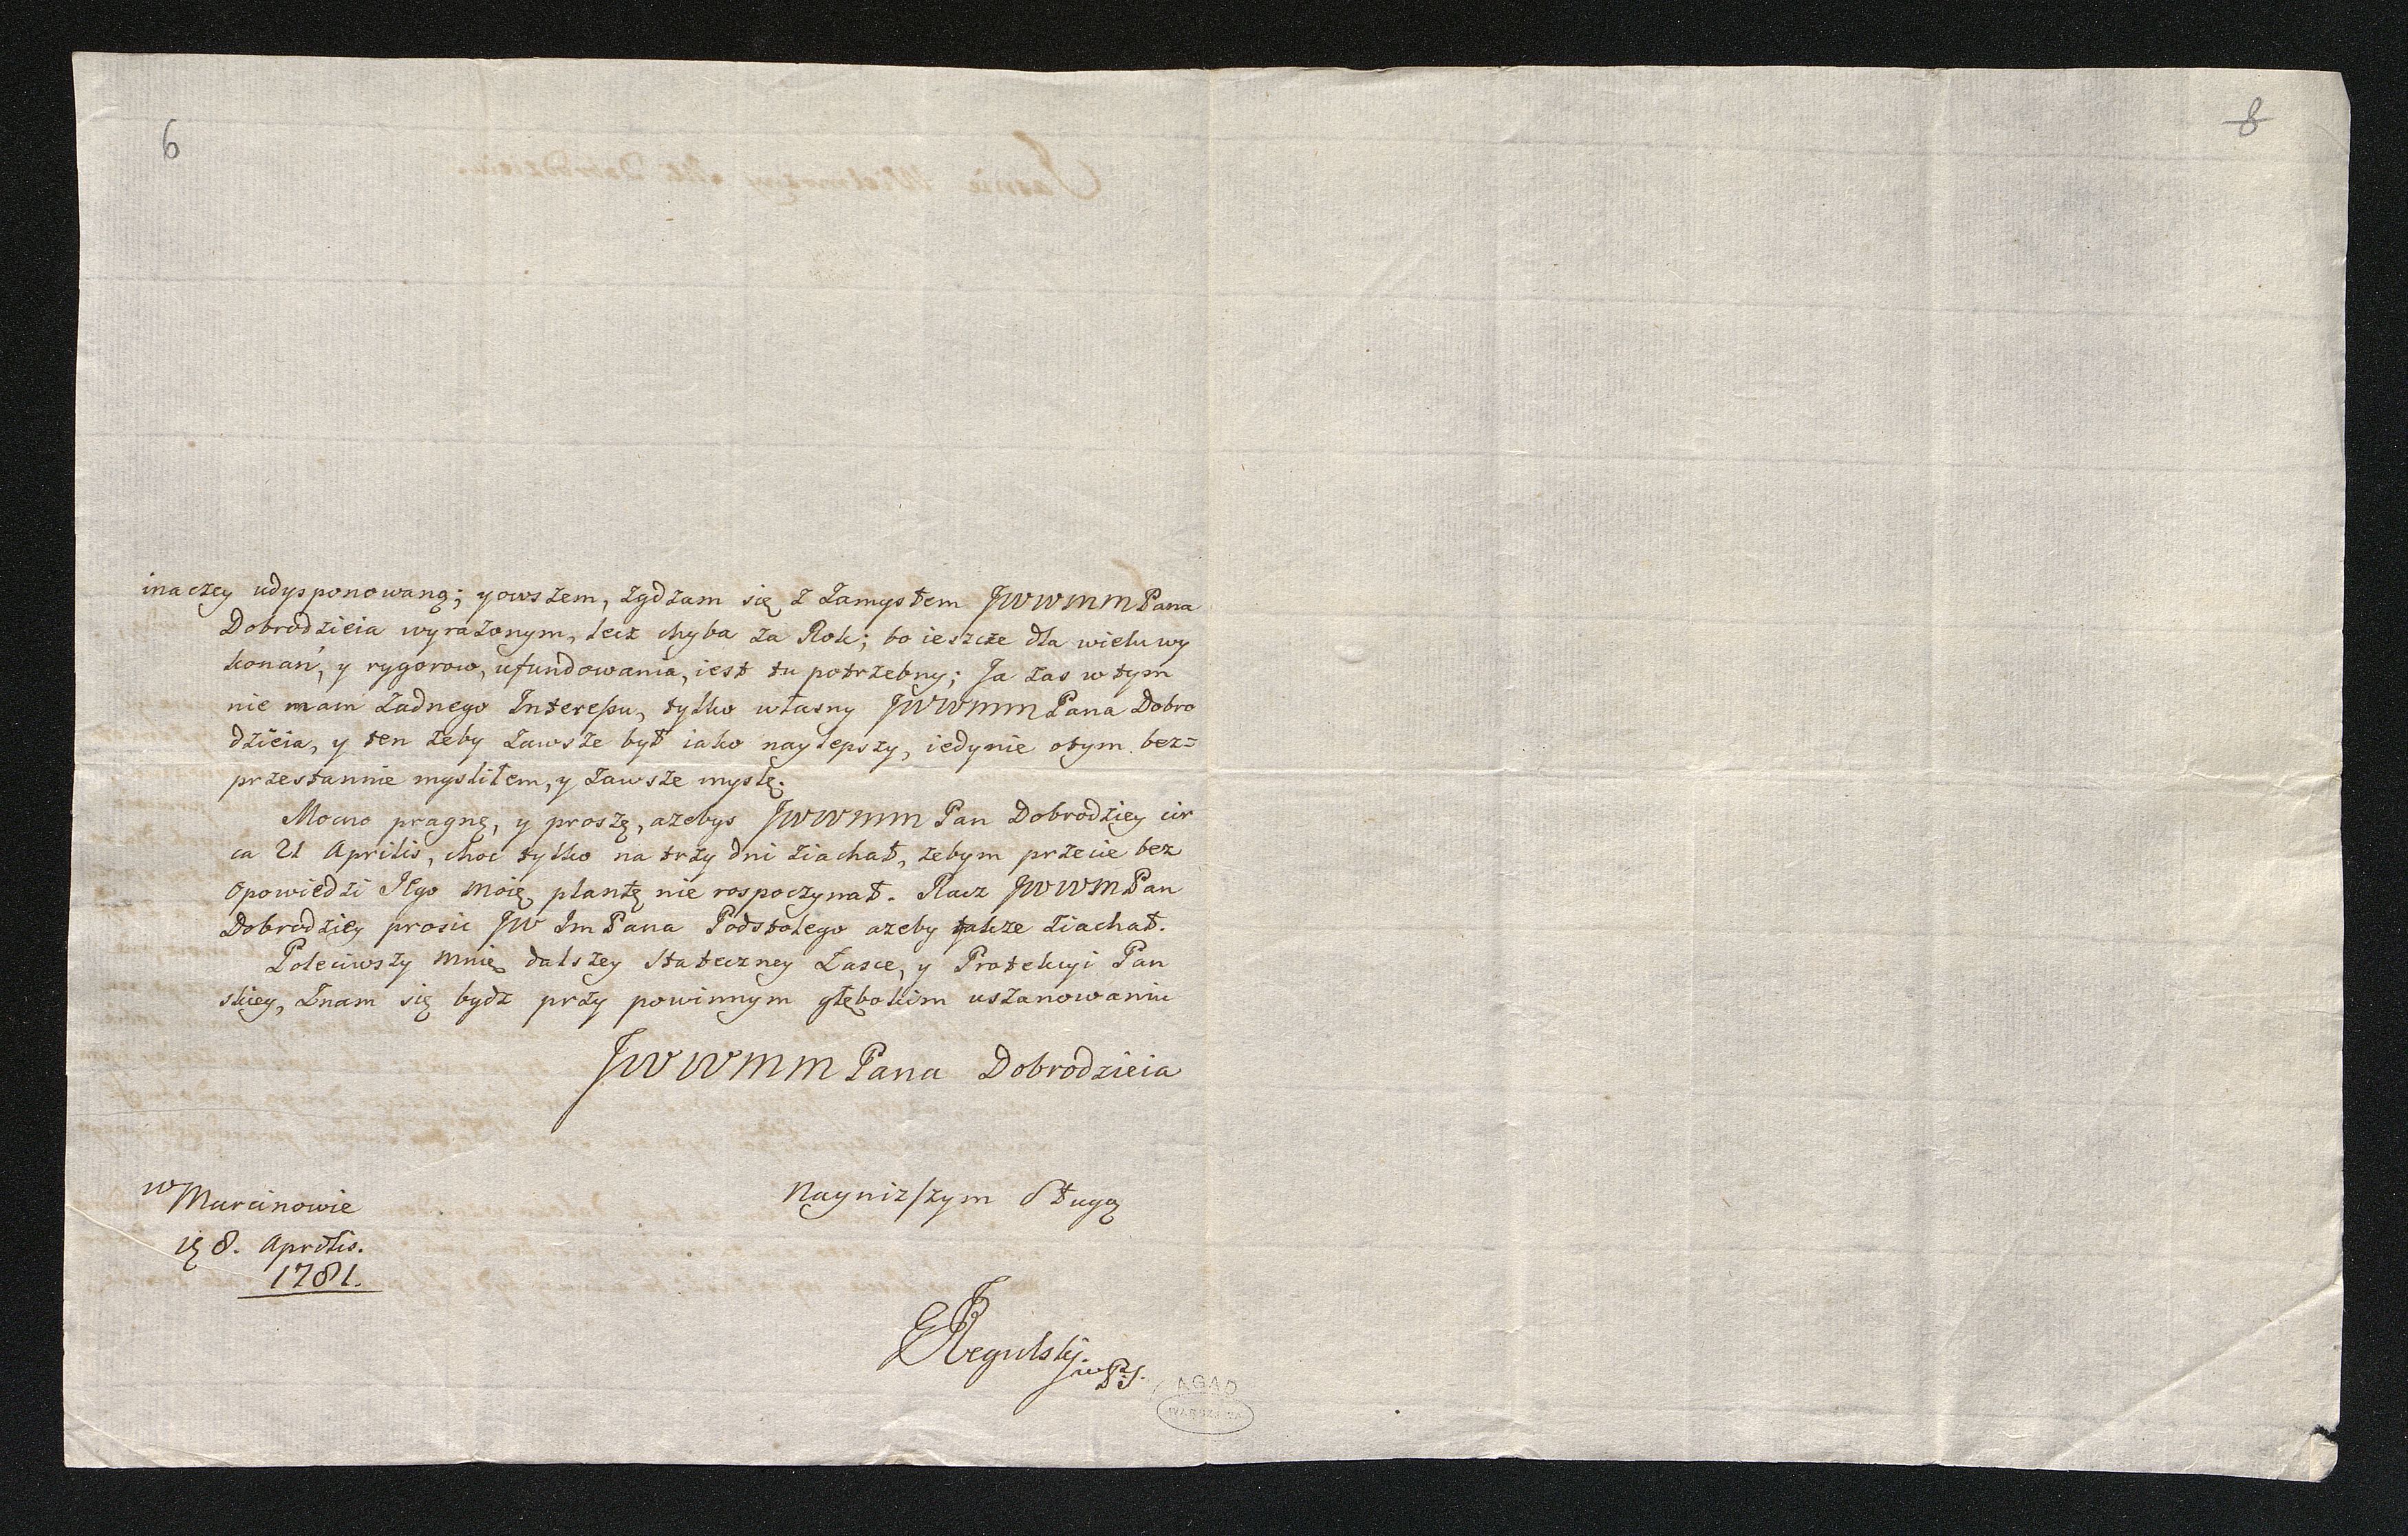 6
8
inaczey udysponowaną; yowszem, zgdzam się z zamysłem JWWMM Pana
Dobrodzieia wyrażonym, lecz chyba za Rok; bo ieszcze dla wielu wy
konań, y rygorow, ufundowania, iest tu potrzebny; Ja zas w tym
nie mam żadnego Interessu, tylko własny JWWMM Pana Dobro
dzieia, y ten żeby zawsze był iako naylepszy, iedynie otym bez=
przestannie mysliłem, y zawsze myslę.
Mocno pragnę, y proszę, azebys JWWMM Pan Dobrodziey cir
ca 21 Aprilis, choc tylko na trzy dni ziachał, żebym przecie bez
opowiedzi JEgo moię plantę nie rospoczynał. Racz JWWM Pan
Dobrodziey prosic JW Im Pana Podstolego azeby takze ziachał.
Poleciwszy mnie dalszey Stateczney Łasce, y Protekcyi Pan
skiey, Znam się bydz przy powinnym głębokim uszanowaniu
JWWMM Pana Dobrodzieia
w Marcinowie
8. Aprilis.
1781.
Nayniższym Sługą
Regulski
AGAD
WARSZAWA